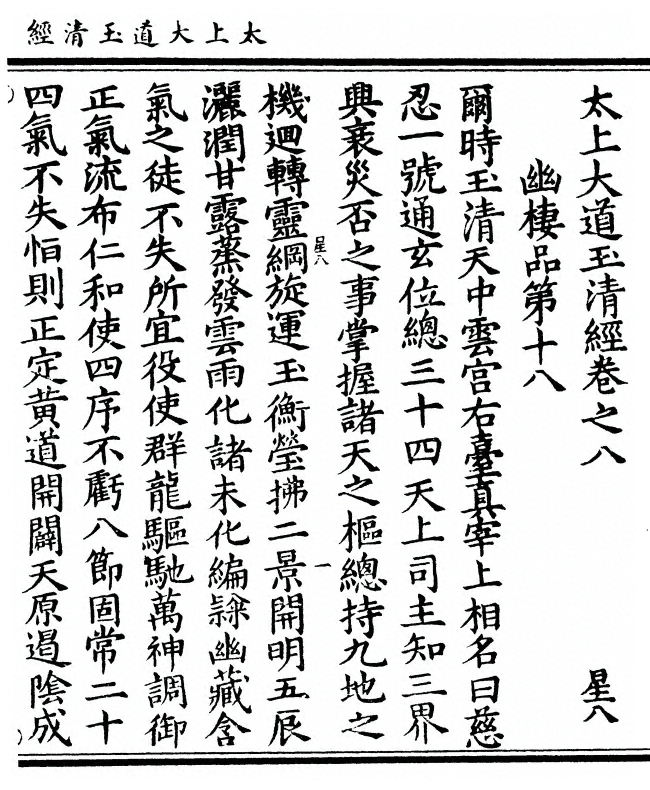 太上大道玉清經
太上大道玉清經卷之八 星八
幽棲品第十八
爾時玉清天中雲宮右臺真宰上相名曰慈
忍一號通玄位總三十四天上司主知三界
興衰災否之事掌握諸天之樞總持九地之
機迴轉靈綱旋運玉衡瑩拂二景開明五辰
星八 一
灑潤甘露蒸發雲雨化諸未化編隸幽藏含
氣之徒不失所宜役使群龍驅馳萬神調御
正氣流布仁和使四序不虧八節固常二十
四氣不失恒則正定黃道開闢天原遏陰成